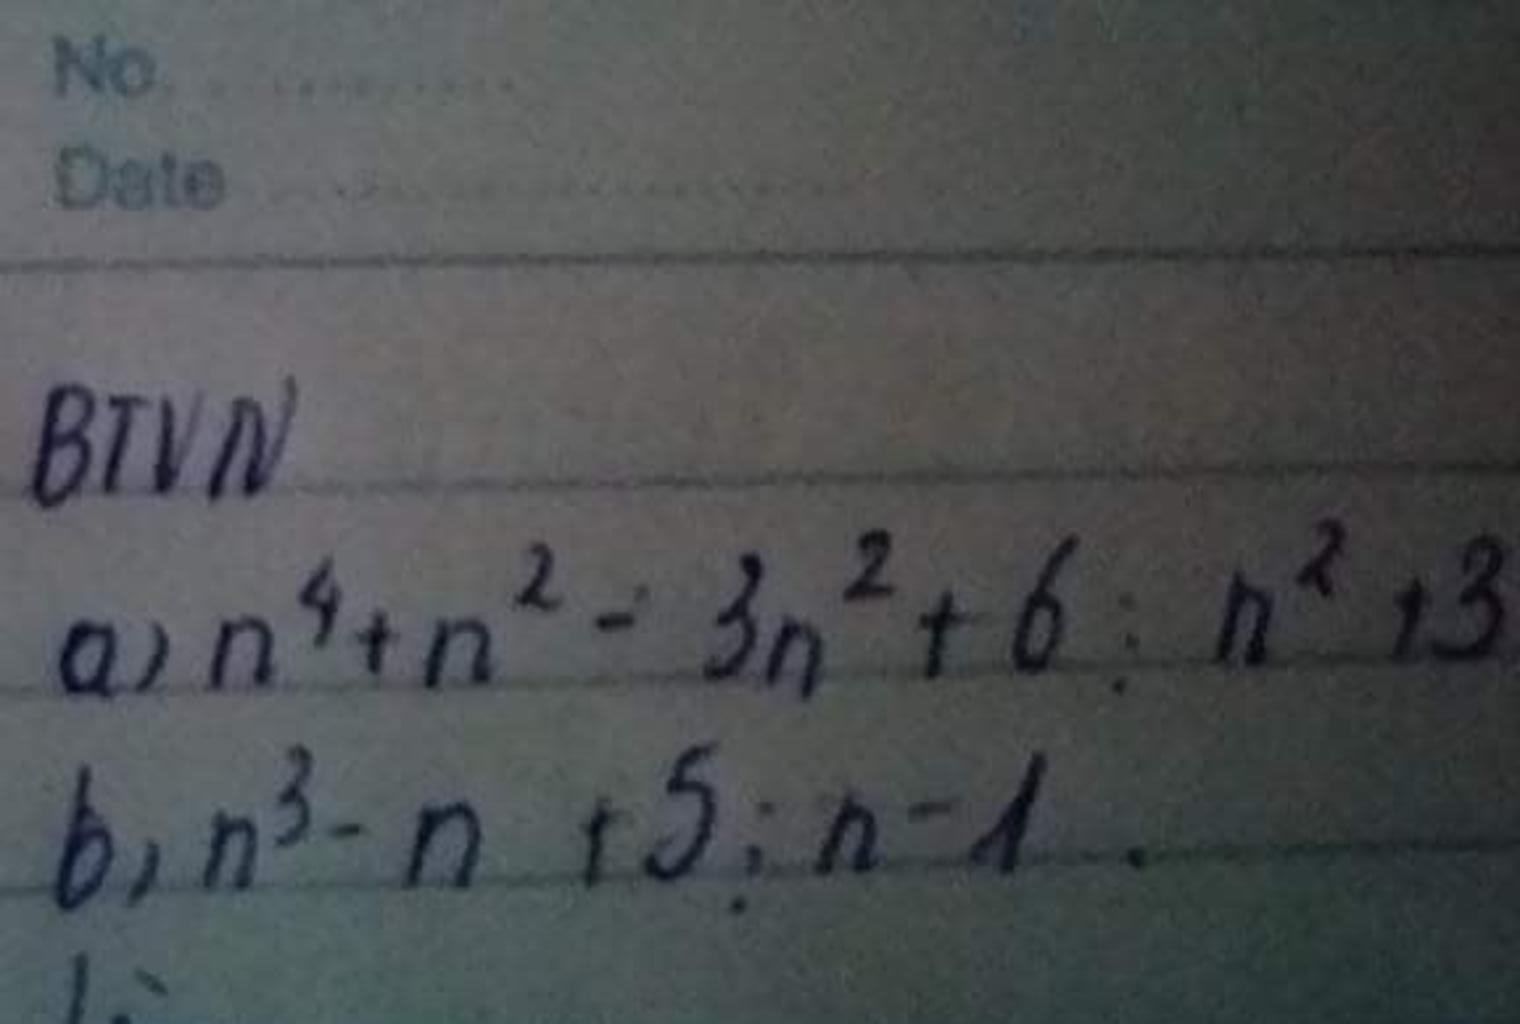 No
Date
BTVN
a) n⁴ + n² - 3n² + 6 ⋮ n² + 3
b, n³ - n + 5 ⋮ n - 1 .